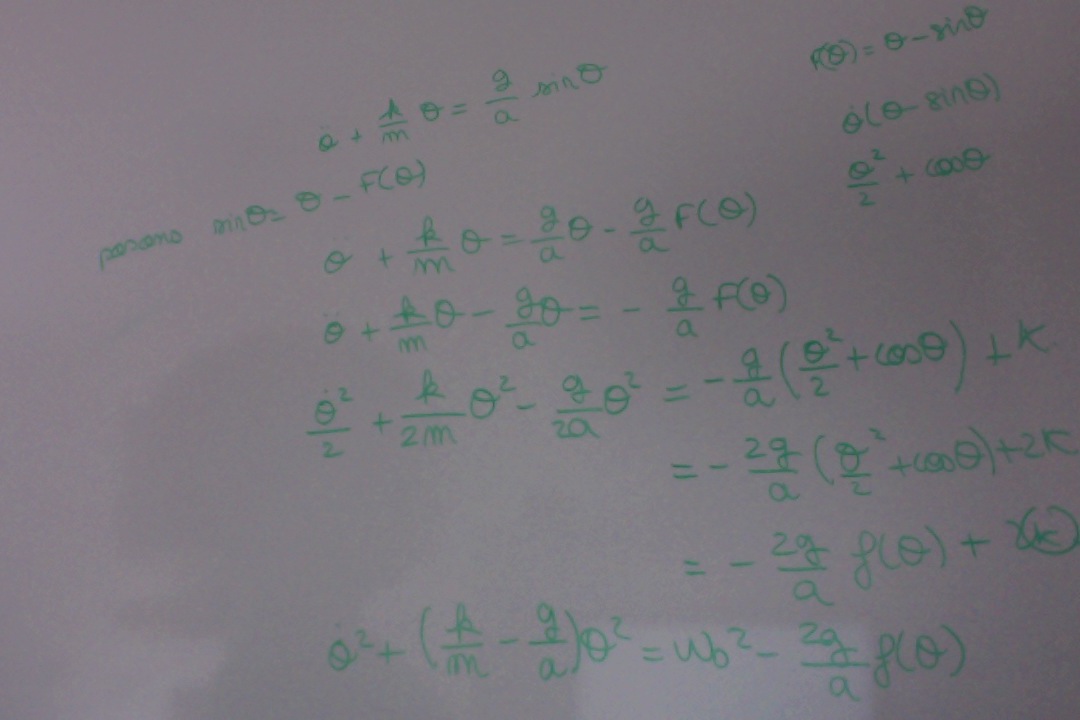 F(θ) = θ - sinθ
θ̈ + k/m θ = g/a sinθ
θ̇(θ - sinθ)
θ²/2 + cosθ
sinθ = θ - F(θ)
θ̈ + k/m θ = g/a θ - g/a F(θ)
θ̈ + k/m θ - gθ/a = - g/a F(θ)
θ̇²/2 + k/2m θ² - g/2a θ² = - g/a (θ²/2 + cosθ) + K
= - 2g/a (θ²/2 + cosθ) + 2K
= - 2g/a f(θ) + 2K
θ̇² + (k/m - g/a)θ² = ω₀² - 2g/a f(θ)